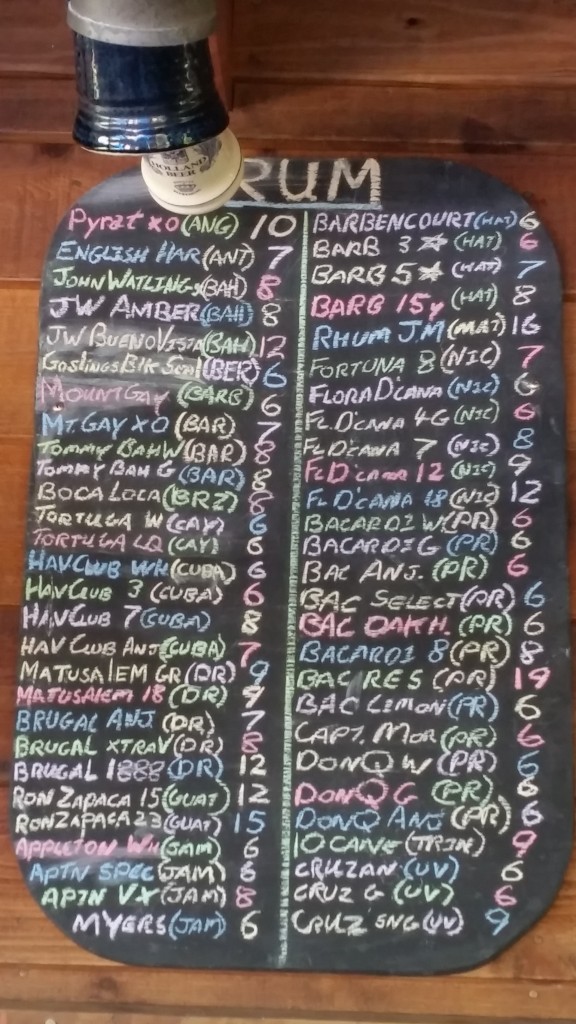 RUM
Pyrat XO (ANG) 10
ENGLISH HAR (ANT) 7
JOHN WATLINGS (BAH) 8
JW AMBER (BAH) 8
JW BUENO VISTA (BAH) 12
(BER) 6
MOUNT GAY (BARB) 6
MT GAY XO (BAR) 7
Tommy BAHM (BAR) 8
Tommy BAH G (BAR) 8
BOCA LOCA (BRZ) 8
TORTUGA W (CAY) 6
TORTUGA LQ (CAY) 6
HAVCLUB WH (CUBA) 6
HAV CLUB 3 (CUBA) 6
HAVCLUB 7 (CUBA) 8
HAV CLUB ANE (CUBA) 7
MATUSALEM GR (DR) 9
MATUSALEM 18 (DR) 9
BRUGAL ANE (DR) 7
BRUGAL XTRV (DR) 8
BRUGAL 1888 (DR) 12
RON ZAPACA 15 (GUAT) 12
RONZAPACA 23 (GUA) 15
APPLETON Wh (JAM) 6
APPN SPEC (JAM) 6
APPN VX (JAM) 8
MYERS (JAM) 6
BARBENCOURT (HAT) 6
BARB 3 ★ (HAT) 6
BARB 5 ★ (HAT) 7
BARB 15Y (HAT) 8
RHUM JM (MAR) 16
FORTUNA 8 (NIC) 7
FLORA D CANA (NIC) 6
FL DCANA 4G (NIC) 6
FL DCANA 7 (NIC) 8
FL DCANA 12 (NIC) 9
FL DCANA 18 (NIC) 12
BACARDI W (PR) 6
BACARDI G (PR) 6
BAC ANE (PR) 6
BAC SELECT (PR) 6
BAC OAKH (PR) 6
BACARDI 8 (PR) 8
BAC RES (PR) 19
BAC LEMON (PR) 6
CAPT. Mor (PR) 6
DONQ W (PR) 6
DONQ G (PR) 8
DONQ ANE (PR) 6
10 CANE (TRIN) 9
CRUZAN (VI) 6
CRUZ G (VI) 6
CRUZ SING (VI) 9